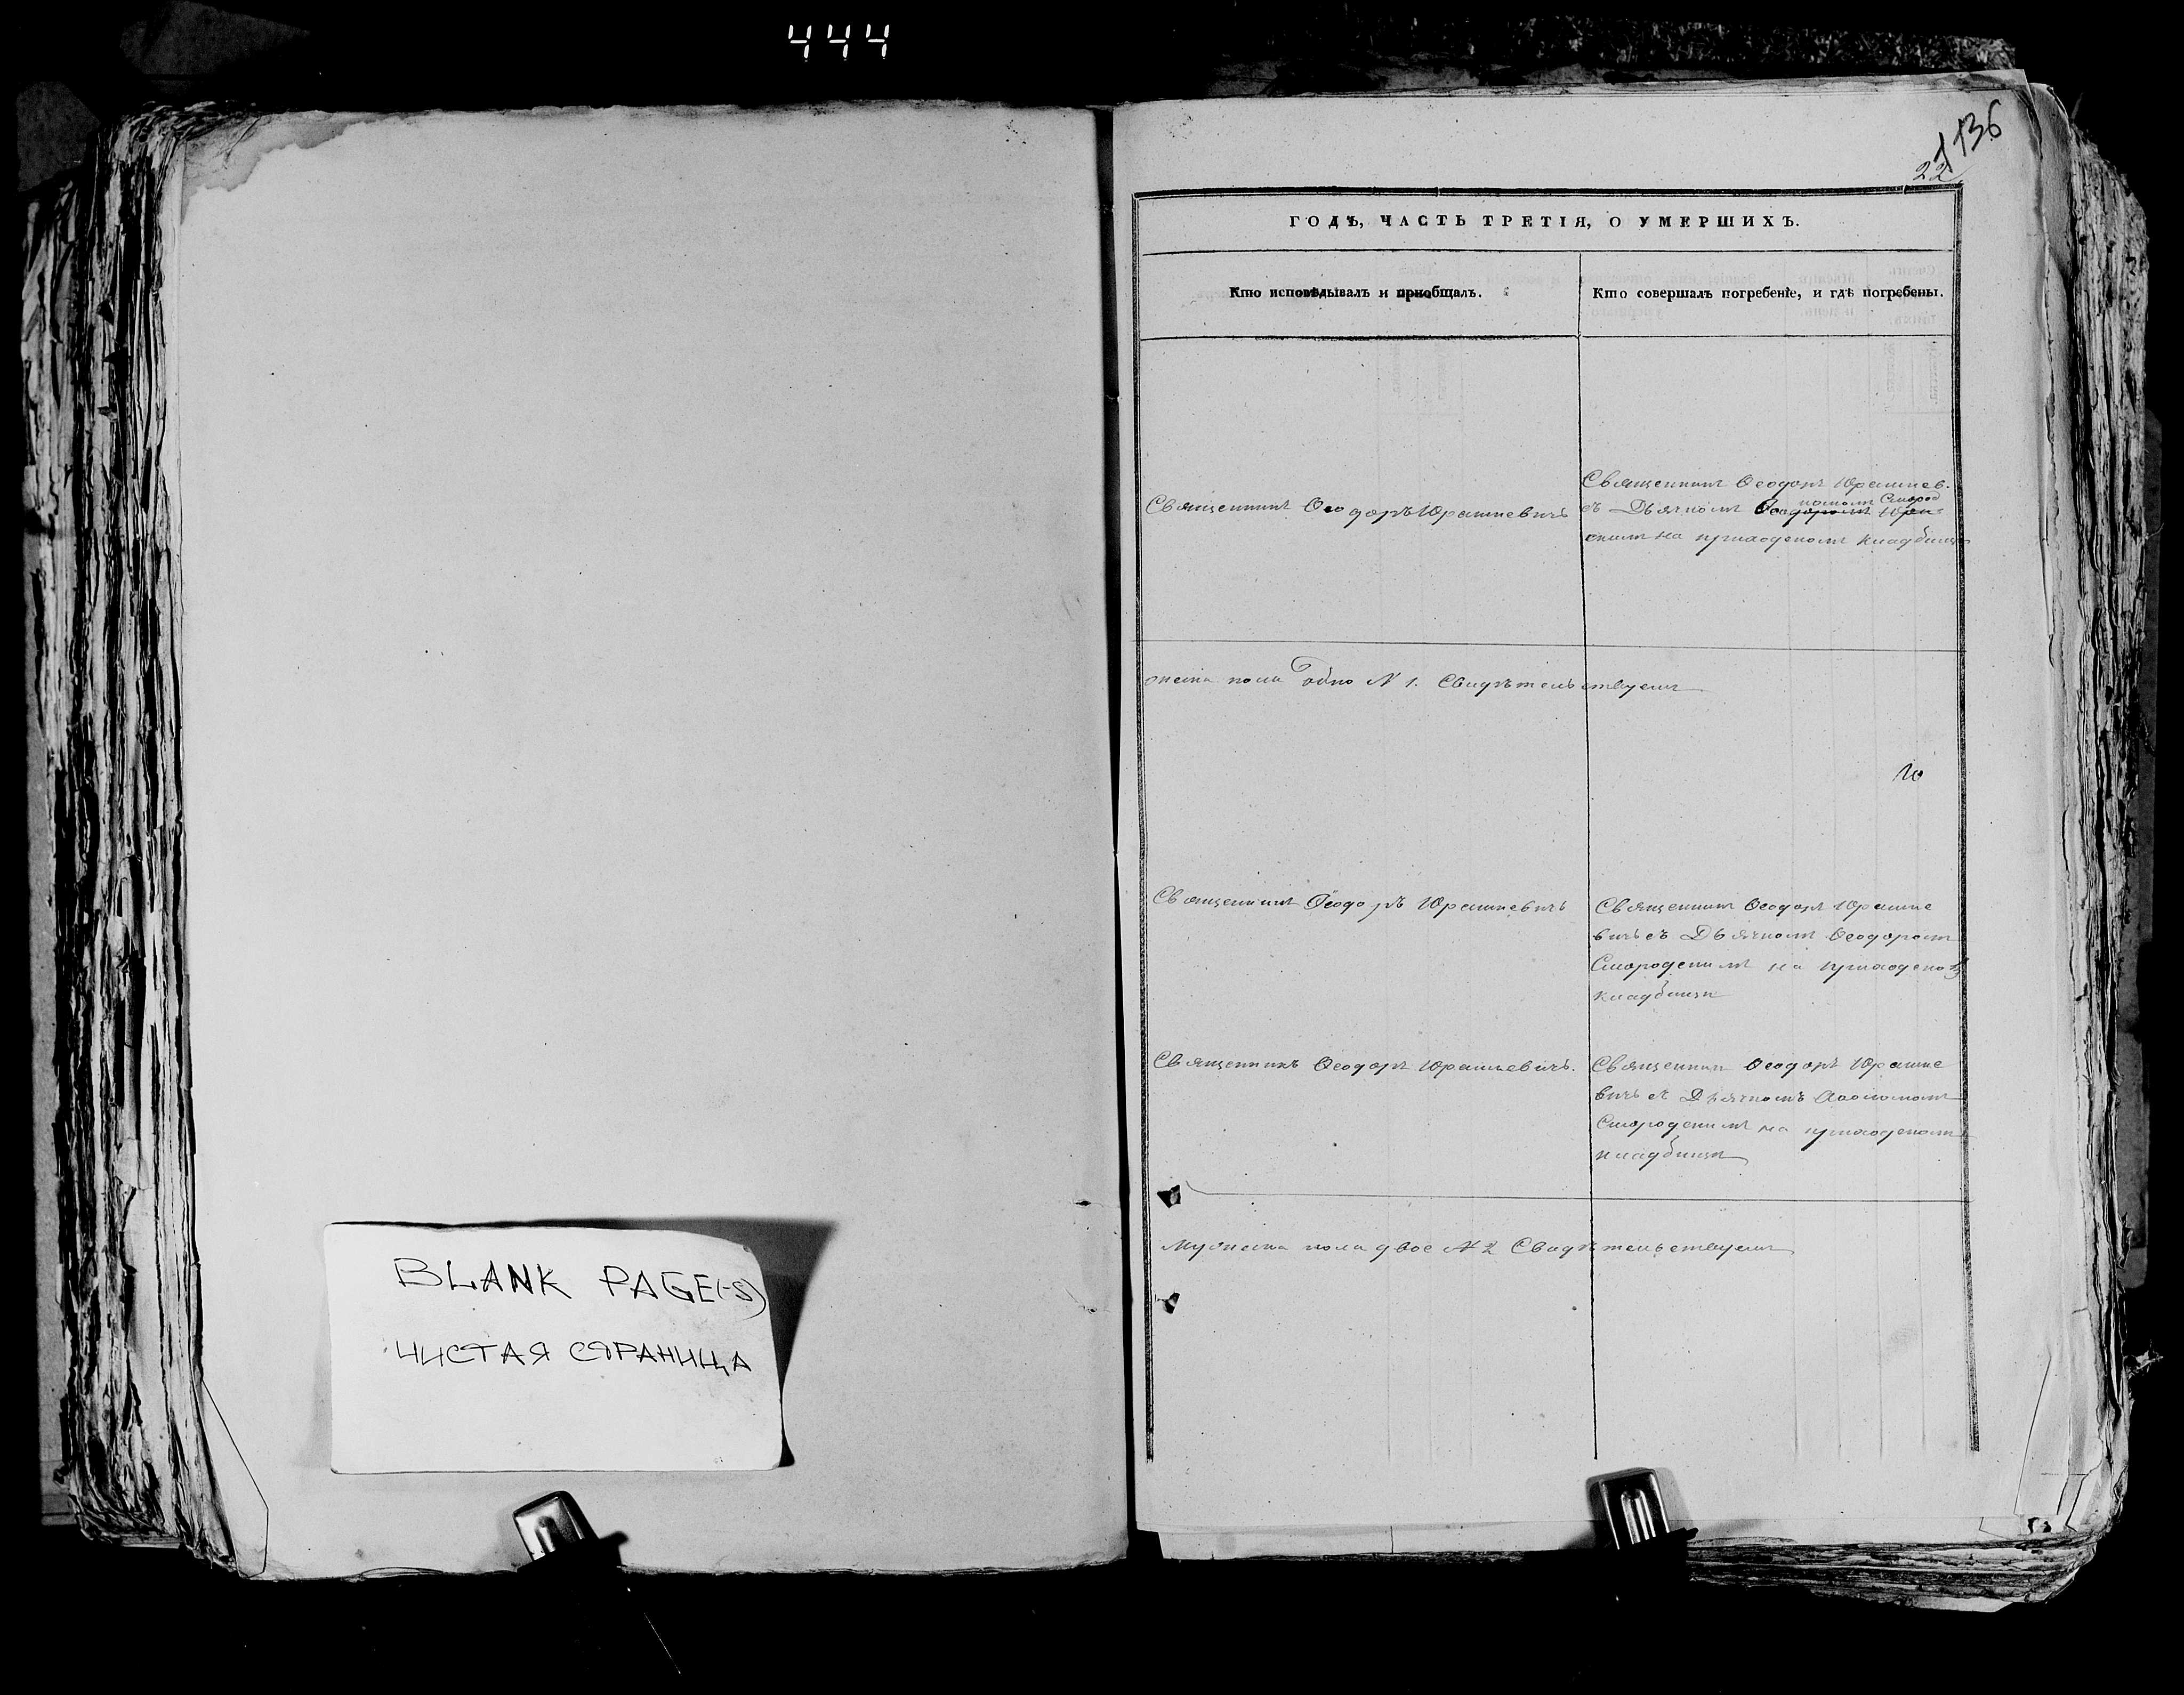 444
BLANK PAGE(-S)
ЧИСТАЯ СТРАНИЦА
136
22
ГОДЪ, ЧАСТЬ ТРЕТІЯ, О УМЕРШИХЪ.
Кто исповѣдывалъ и приобщалъ.
Кто совершалъ погребеніе, и гдѣ погребены.
Священникъ Ѳеодоръ Юрашкевичь
Священникъ Ѳеодоръ Юрашкев.
съ Дьячкомъ Смород
скимъ на приходскомъ кладбищѣ
пола одно N 1. Свидѣтельствуемъ
Священникъ Ѳеодоръ Юрашкевичь
Священникъ Ѳеодоръ Юрашке
вичь съ Дьячкомъ Ѳеодоромъ
Смородскимъ на приходско
кладбищѣ
Священникъ Ѳеодоръ Юрашкевичь.
Священникъ Ѳеодоръ Юрашке
вичь съ Дьячкомъ
Смородскимъ на приходскомъ
кладбищѣ
Мужеска пола двое N 2 Свидѣтельствуемъ